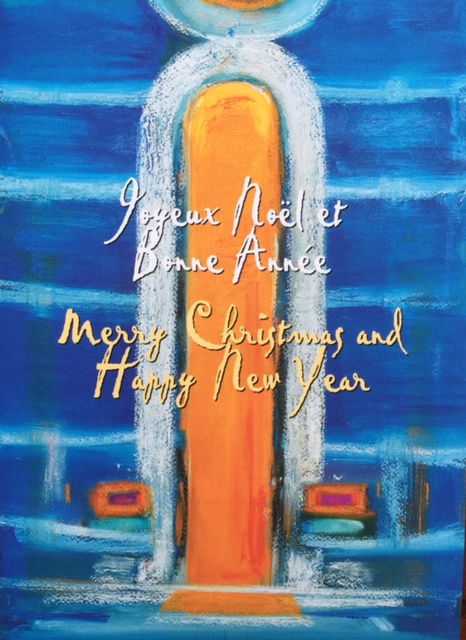 Joyeux Noël et
Bonne Année
Merry Christmas and
Happy New Year